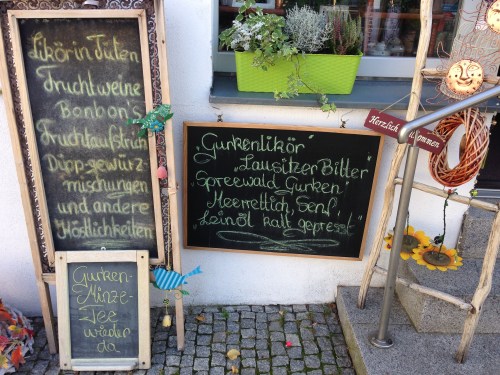 Likör in Tüten
Fruchtweine
Bonbon's
Fruchtaufstrich
Dipp-gewürz-
mischungen
und andere
Köstlichkeiten
Gurken-
Minze-
Tee
wieder
da
„Gurkenlikör"
„Lausitzer Bitter"
„Spreewald Gurken"
Meerrettich, Senf,
„Leinöl kalt gepresst"
Herzlich Willkommen